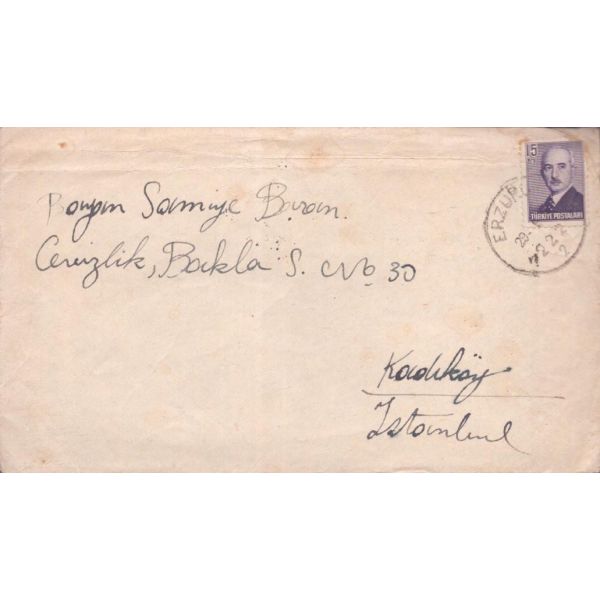 15
TÜRKİYE POSTALARI
ERZUR
Bayan Samiye Baran.
Cevizlik, Bakla S. No 30
Kadıköy
İstanbul